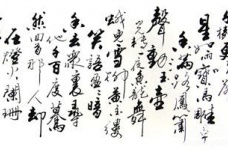 星如雨寶馬雕車
香滿路鳳簫
聲動玉壺
光轉一夜魚龍舞
蛾兒雪柳黃金縷
笑語盈盈暗
香去衆裏尋
他千百度驀
然回首那人却
在燈火闌珊